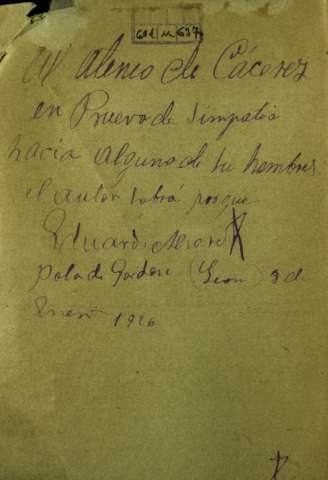 601 M 637
Al Ateneo de Cáceres
en Prueva de simpatia
hacia alguno de tu hombres
el autor sabrá porque
Eduardo
Pola de Gordon (Leon) 8 de
Enero 1926